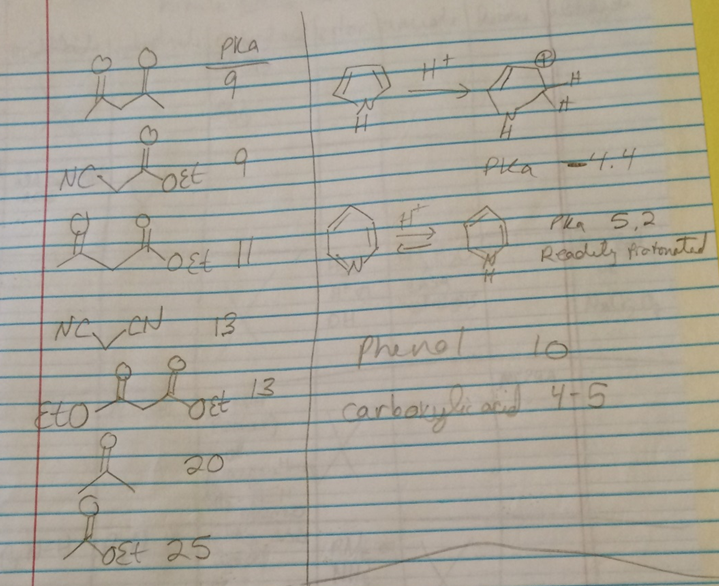 pKa
O O
9
O
NC OEt 9
O O
OEt 11
NC CN 13
O O
EtO OEt 13
O
20
O
OEt 25
H+
N
H
⊕
H
H
N
H
pKa -4.4
N
H+
N
H
pKa 5.2
Readily Protonated
Phenol 10
carboxylic acid 4-5